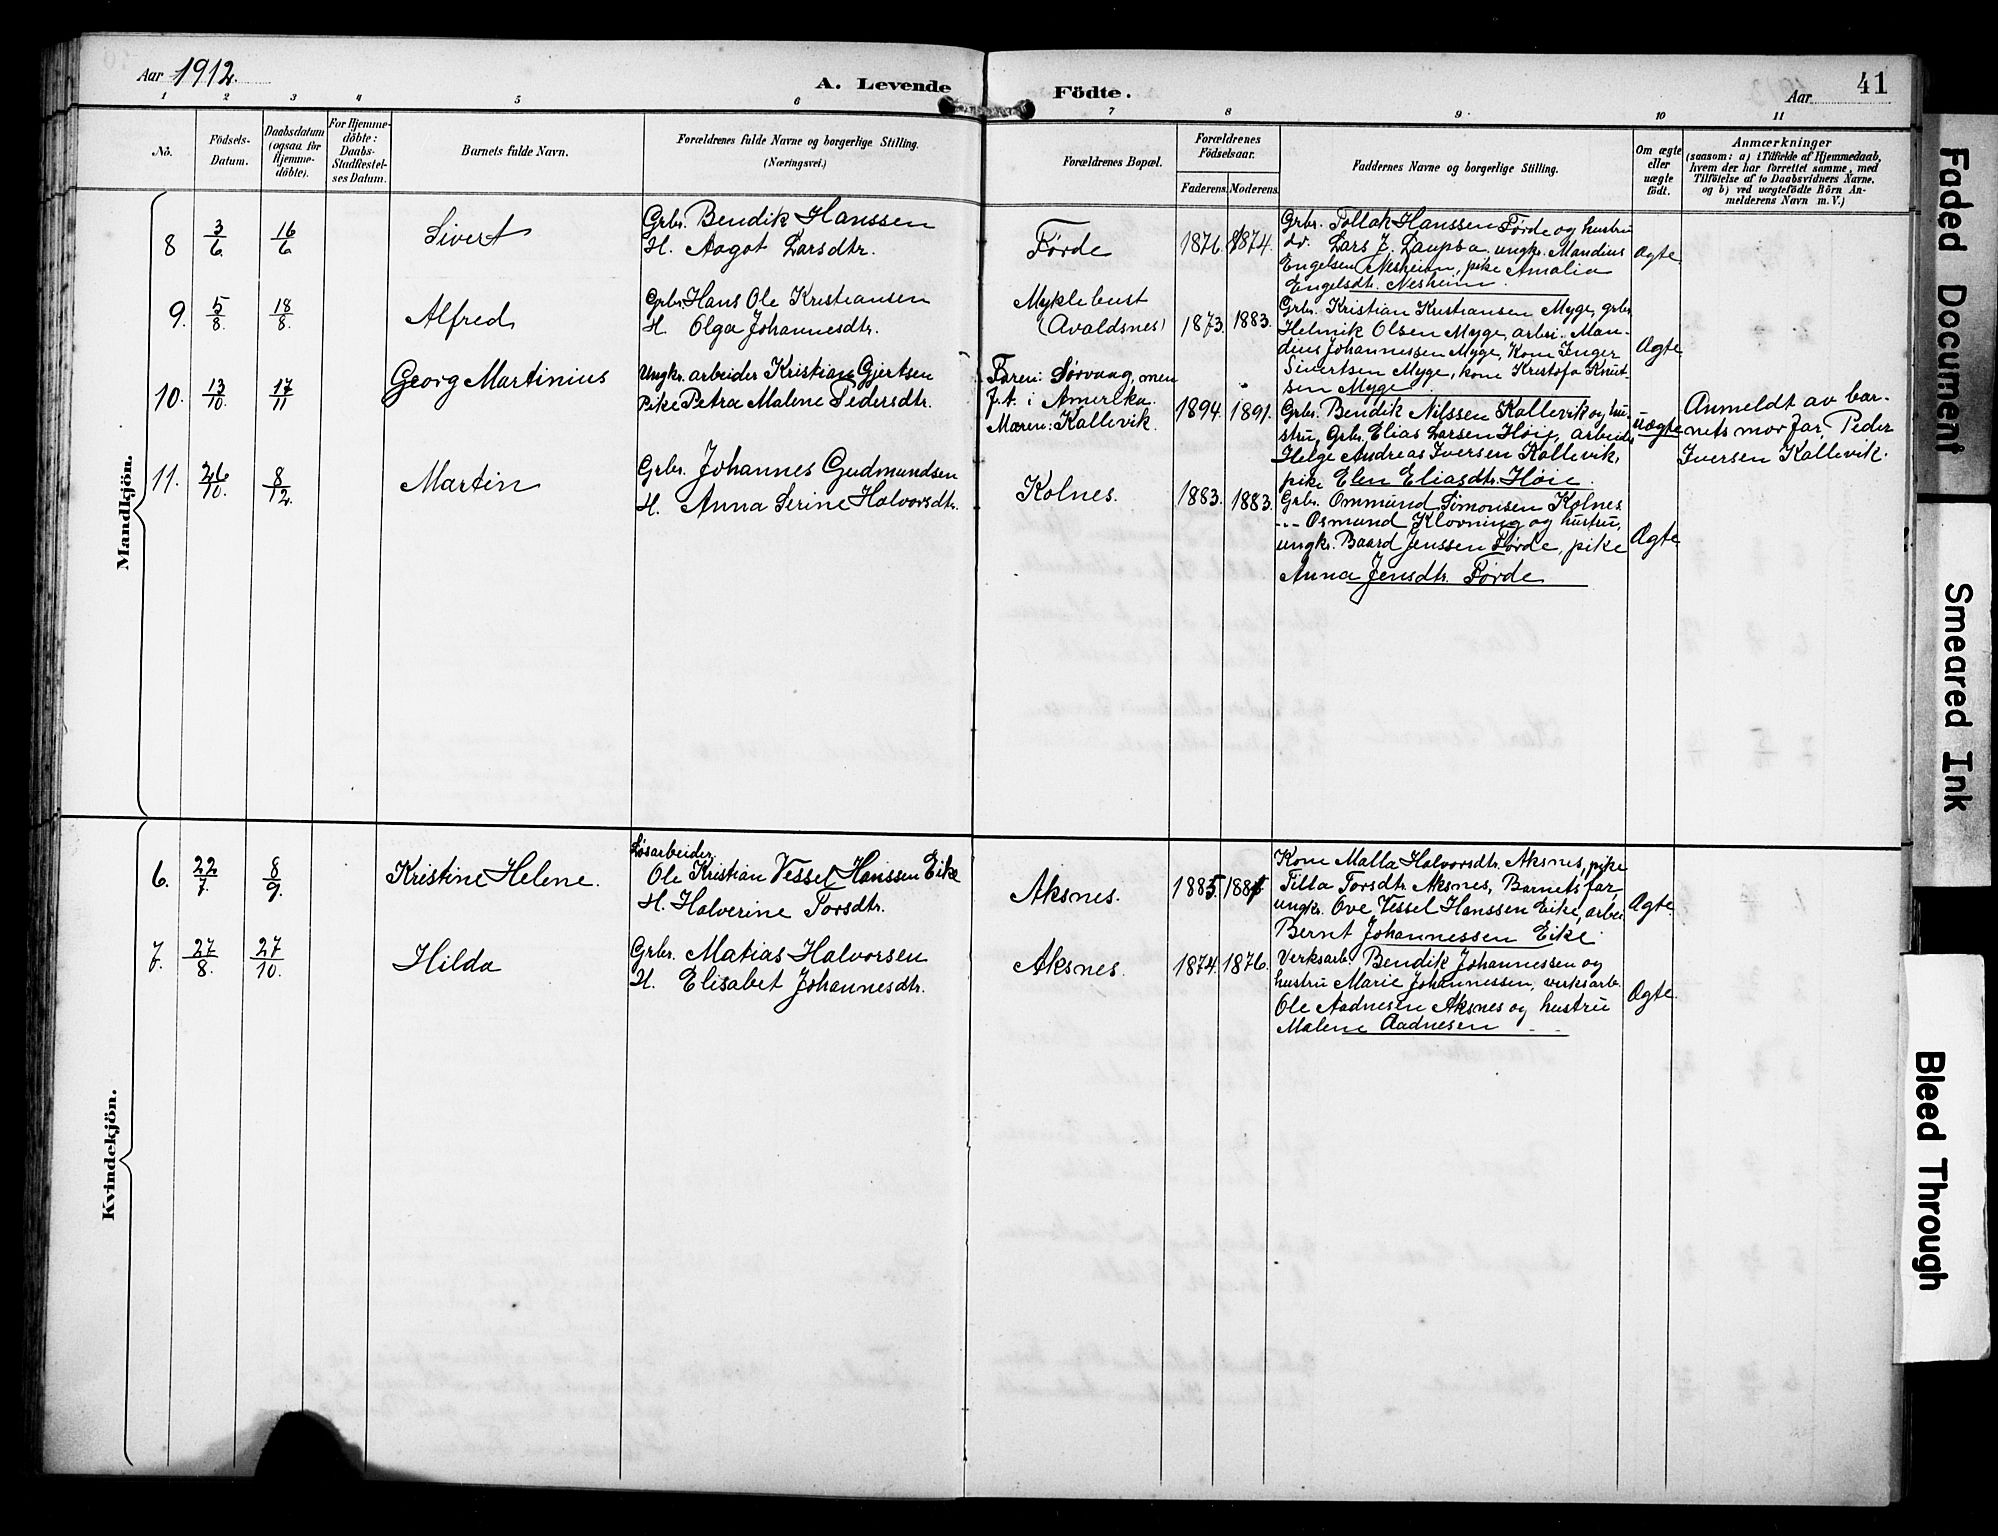 Aar 1912.
A. Levende Födte.
Aar 41
1 2 3 4 5 6 7 8 9 10 11
No.
Födsels-
Datum.
Daabsdatum
(ogsaa for
Hjemme-
döbte).
For Hjemme-
döbte:
Daabs-
Stadfæstel-
ses Datum.
Barnets fulde Navn.
Forældrenes fulde Navne og borgerlige Stilling.
(Næringsvei.)
Forældrenes Bopæl.
Forældrenes
Födselsaar.
Faderens. Moderens.
Faddernes Navne og borgerlige Stilling.
Om ægte
eller
uægte
födt.
Anmærkninger
(saasom: a) i Tilfælde af Hjemmedaab,
hvem der har forrettet samme, med
Tilföielse af to Daabsvidners Navne,
og b) ved uægtefödte Börn An-
melderens Navn m. V.)
Mandkjön.
8 3/6 16/6 Sivert
Grbr. Bendik Hanssen
H. Aagot Larsdtr.
Førde 1876. 1874.
Grbr. Tollak Hanssen Førde og hustru
do. Lars J. Laupba, ungkr. Mandius
Engelsen Nesheim, pike Amalia
Engelsdtr. Nesheim.
Ægte
9. 5/8. 18/8. Alfred
Grbr. Hans Ole Kristiansen
H. Olga Johannesdtr.
Myklebust
(Avaldsnes) 1873. 1883.
Grbr. Kristian Kristiansen Myge, grbr.
Helmik Olsen Myge, arbei. Man-
dius Johannessen Myge, Kone Inger
Sivertsen Myge, kone Kristofa Knut-
sen Myge
Ægte
10. 13/10. 17/11 Georg Martinius
Ungkr. arbeider Kristian Gjertsen
Pike Petra Malene Pedersdtr.
Faren: Sørvaag, men
f.t. i Amerika.
Moren: Kallevik. 1894. 1891.
Grbr. Bendik Nilssen Kallevik og hu-
stru, Grbr. Elias Larsen Høie, arbeider
Helge Andreas Iversen Kallevik,
pike Elen Eliasdtr. Høie.
uægte
Anmeldt av bar-
nets morfar, Peder
Iversen Kallevik.
11. 26/10. 8/12. Martin
Grbr. Johannes Gudmundsen
H. Anna Serine Halvorsdtr.
Kolnes. 1883. 1883.
Grbr. Ommund Simonsen Kolnes
--- Osmund Klovning og hustru,
ungkr. Baard Jenssen Førde, pike
Anna Jensdtr. Førde
Ægte
Kvindekjön.
6. 22/7. 8/9. Kristine Helene.
Løsarbeider
Ole Kristian Vessel Hanssen Eike
H. Halverine Torsdtr.
Aksnes. 1885.
Kone Malla Halvorsdtr. Aksnes, pike
Tilla Torsdtr. Aksnes, Barnets far,
ungkr. Ove Vessel Hanssen Eike, arbei
Bernt Johannessen Eike.
Ægte.
7. 27/8. 27/10. Hilda
Grbr. Matias Halvorsen
H. Elisabet Johannesdtr.
Aksnes. 1874. 1876.
Verksarb. Bendik Johannessen og
hustru Marie Johannessen, verksarb.
Ole Aadnesen Aksnes og hustru
Malene Aadnesen
Ægte.
Faded Document
Smeared Ink
Bleed Through